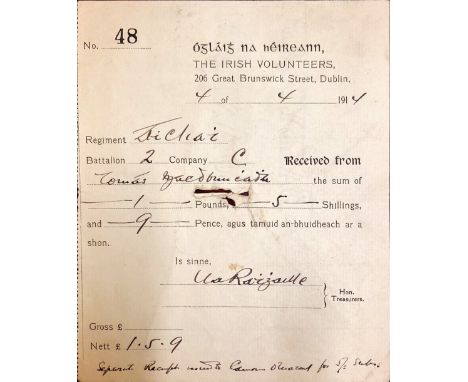 No. 48
Ógláiġ na hÉireann,
THE IRISH VOLUNTEERS,
206 Great Brunswick Street, Dublin.
4 of 4 1914
Regiment
Battalion 2 Company C Received from
Tomás the sum of
1 Pounds, 5 Shillings,
and 9 Pence, agus tamuid an-bhuidheach ar a
shon.
Is sinne,
Ua Rathaille
Hon.
Treasurers.
Gross £
Nett £ 1.5.9
Separate Receipt issued to Eamonn for 5/- Subs.